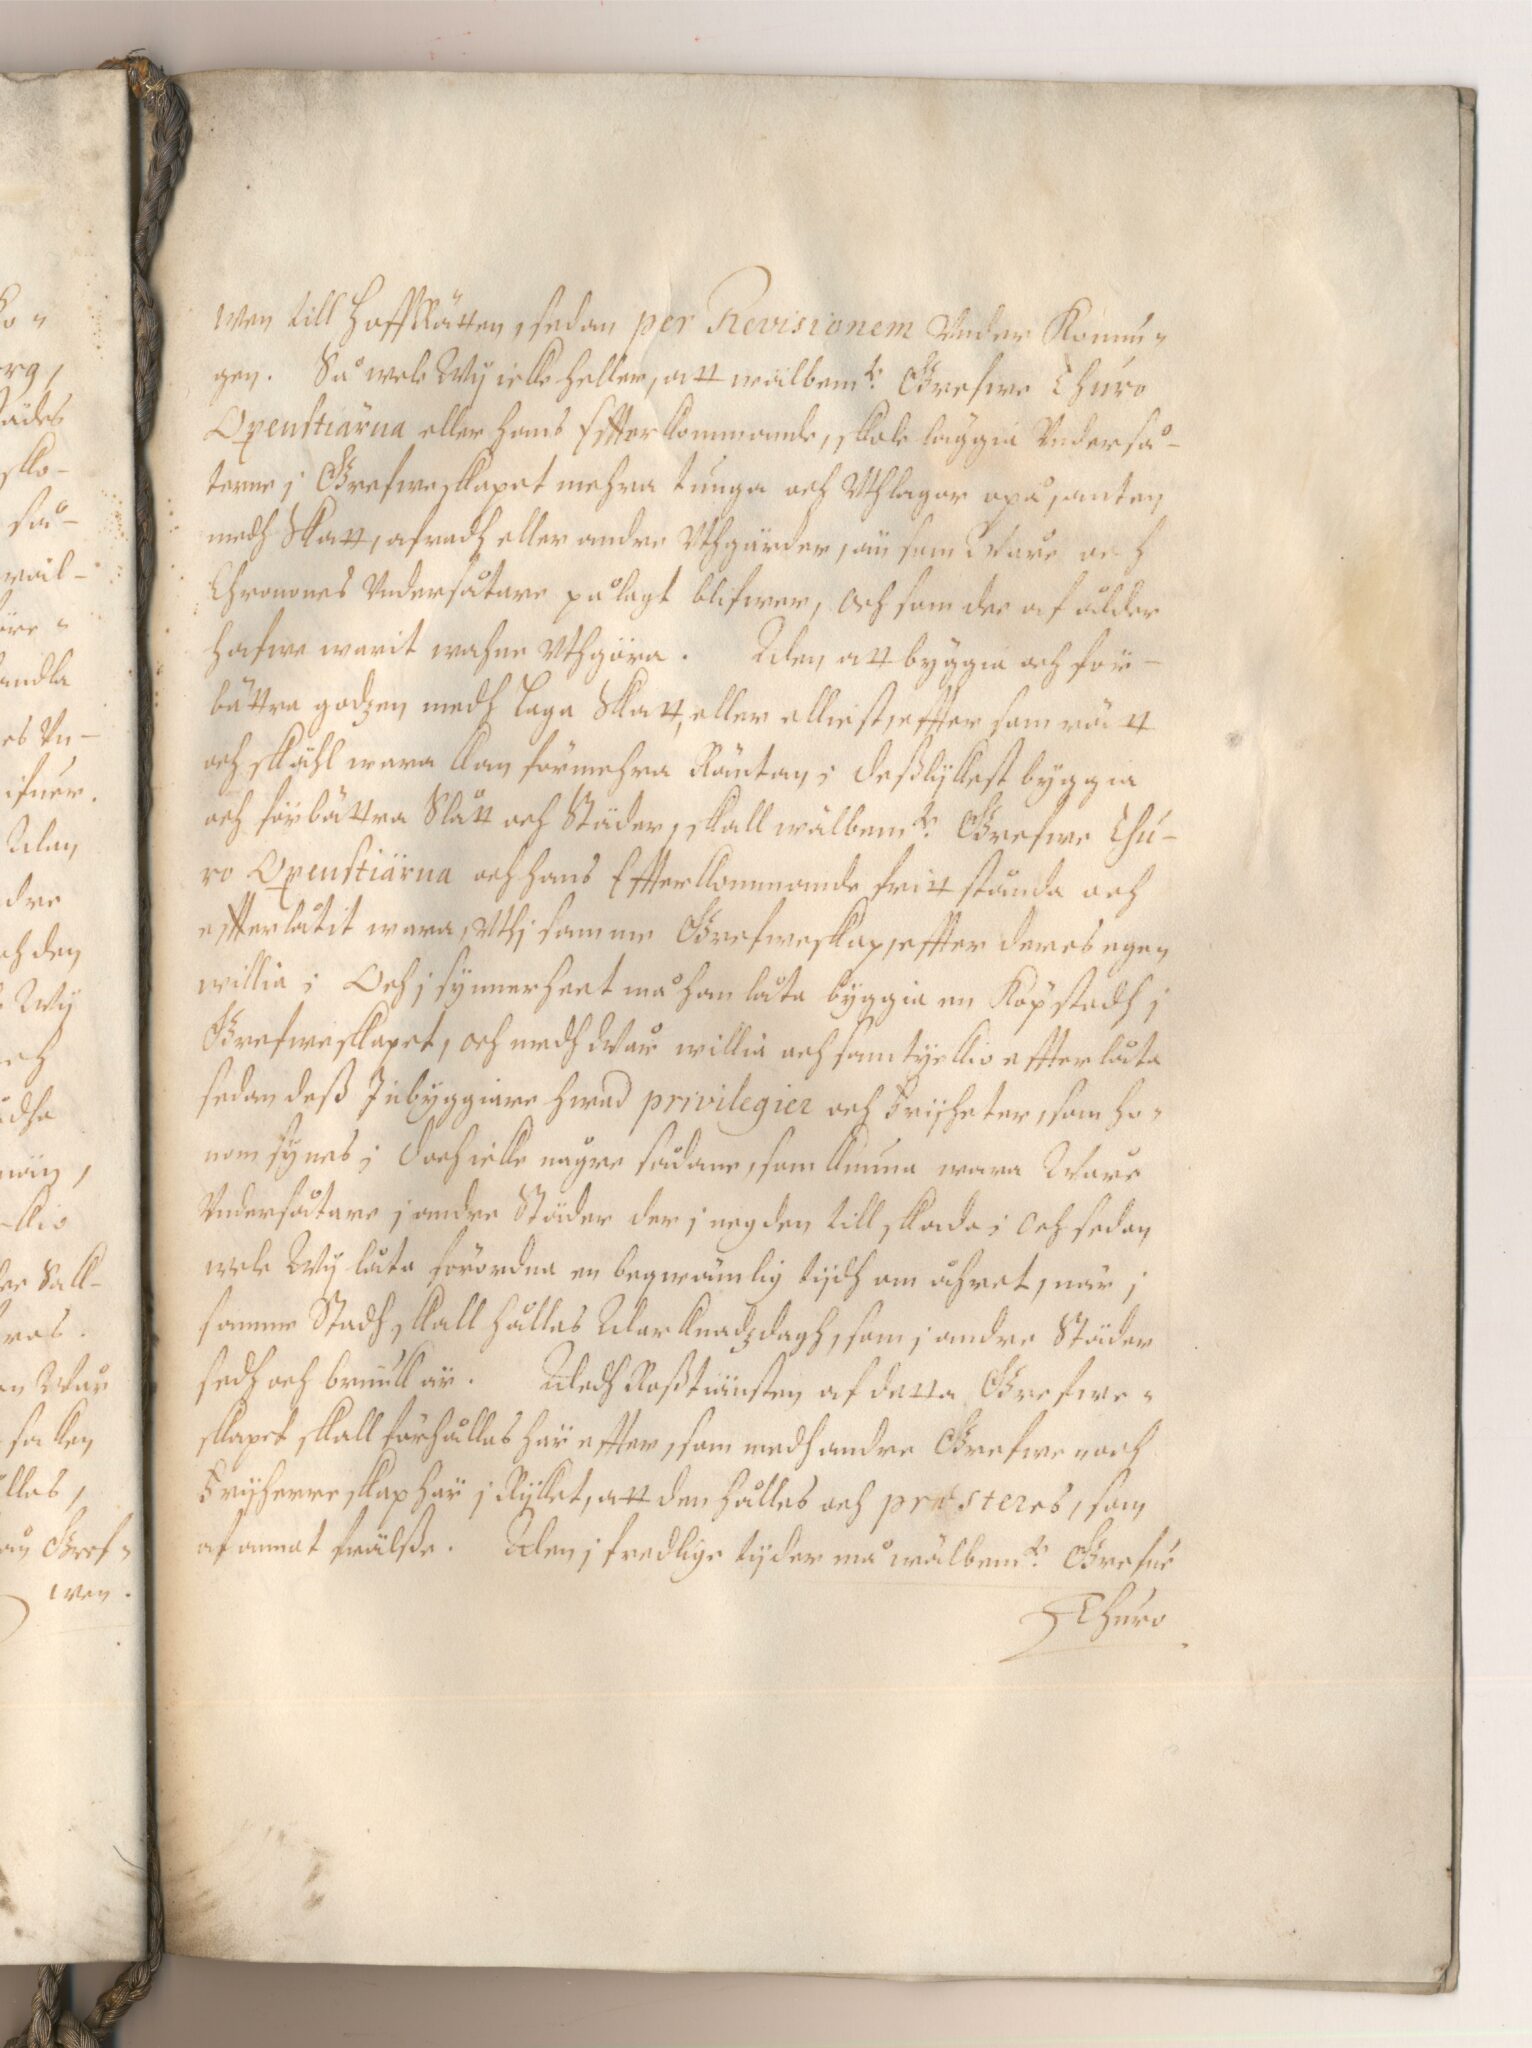 wen till Hoffrätten, sedan per Revisionem Under Konun-
gen. Så wele Wij icke heller, att wälbem:te Grefwe Thuro
Oxenstiärna eller hans Effterkommande, skole läggia Underså-
terne j Grefweskapet mehra tunga och Uthlagor opå, anten
medh Skatt, afradh eller andre Uthgärder, än som Ware och
Chronones Undersåtare pålagt blifwer, och som de af ålder
hafwe warit wahne Uthgöra. Men att byggia och för-
bättra godzen medh laga Skatt, eller elliest, effter som rätt
och skähl wara kan förmehra Räntan; deßlykest byggia
och förbättra Slått och Städer, skall wälbem:te Grefwe Thu-
ro Oxenstiärna och hans Effterkommande fritt stånda och
effterlåtit wara, Uthj samme Grefweskap, effter deres egen
willia; Och j synnerheet må han låta byggia en Köpstadh j
Grefweskapet, och medh Wår willia och samtyckio effterlåta
sedan deß Inbyggiare hwad privilegier och Frijheter, som ho-
nom synes; doch icke någre sådane, som kunna wara Ware
Undersåtare j andre Städer der j negden till skada; och sedan
wele Wij låta förordna en beqwämlig tijdh om åhret, när j
samme Stadh skall hålles Marknadzdagh, som j andre Städer
sedh och bruuk är. Medh Roßtiänsten af detta Grefwe-
skapet skall förhålles här effter, som medh andre Grefwe och
Frijherreskap här j Rijket, att den hålles och præsteres, som
af annat frälße. Men j fredlige tijder må wälbem:te Grefwe
Thuro